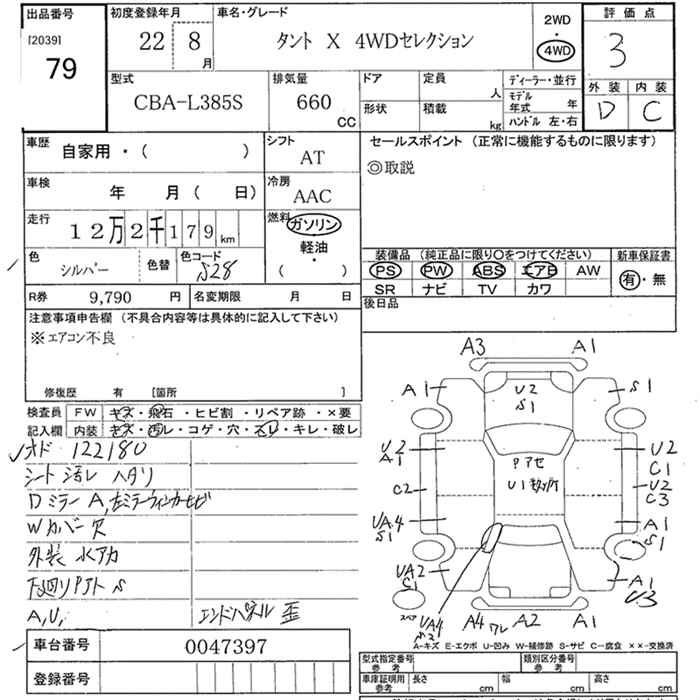 出品番号 初度登録年月 車名・グレード 2WD 評価点
[2039] 79 22 8月 タント X 4WDセレクション 4WD 3
型式 排気量 ドア 定員 人 ディーラー・並行 外装 内装
CBA-L385S 660 CC 形状 積載 kg モデル年式 年 ハンドル 左・右 D C
車歴 自家用・( ) シフト AT セールスポイント (正常に機能するものに限ります)
◎取説
車検 年 月( 日) 冷房 AAC
走行 12万2千179km 燃料 ガソリン
軽油・
( )
色 シルバー 色替 色コード S28
装備品 (純正品に限り○をつけてください) 新車保証書
PS PW ABS エアB AW 有・無
SR ナビ TV カワ
R券 9,790 円 名変期限 月 日 後日品
注意事項申告欄 (不具合内容等は具体的に記入して下さい)
※エアコン不良
修復歴 有 [箇所 ]
検査員 FW キズ・飛石・ヒビ割・リペア跡・×要
記入欄 内装 キズ・汚レ・コゲ・穴・スレ・キレ・破レ
✓オド 122180
シート汚レ ハタリ
Dミラー A, 左ミラーウィンカーヒビ
Wカバー欠
外装 水アカ
下廻リ S
A, U,
エンドパネル 歪
A3 A1
A1 U2 S1 S1
U2 A1 U2 C1
Pアセ
U1
C2 U2 C3
UA4 S1 A1 S1
UA2 S1 A1 U3
スペア UA4 S2 A4 ワレ A2 A1
A-キズ E-エクボ U-凹み W-補修跡 S-サビ C-腐食 ××-交換済
車台番号 0047397
登録番号
型式指定番号 参考 類別区分番号 参考
車庫証明用 参考 長さ cm 幅 cm 高さ cm